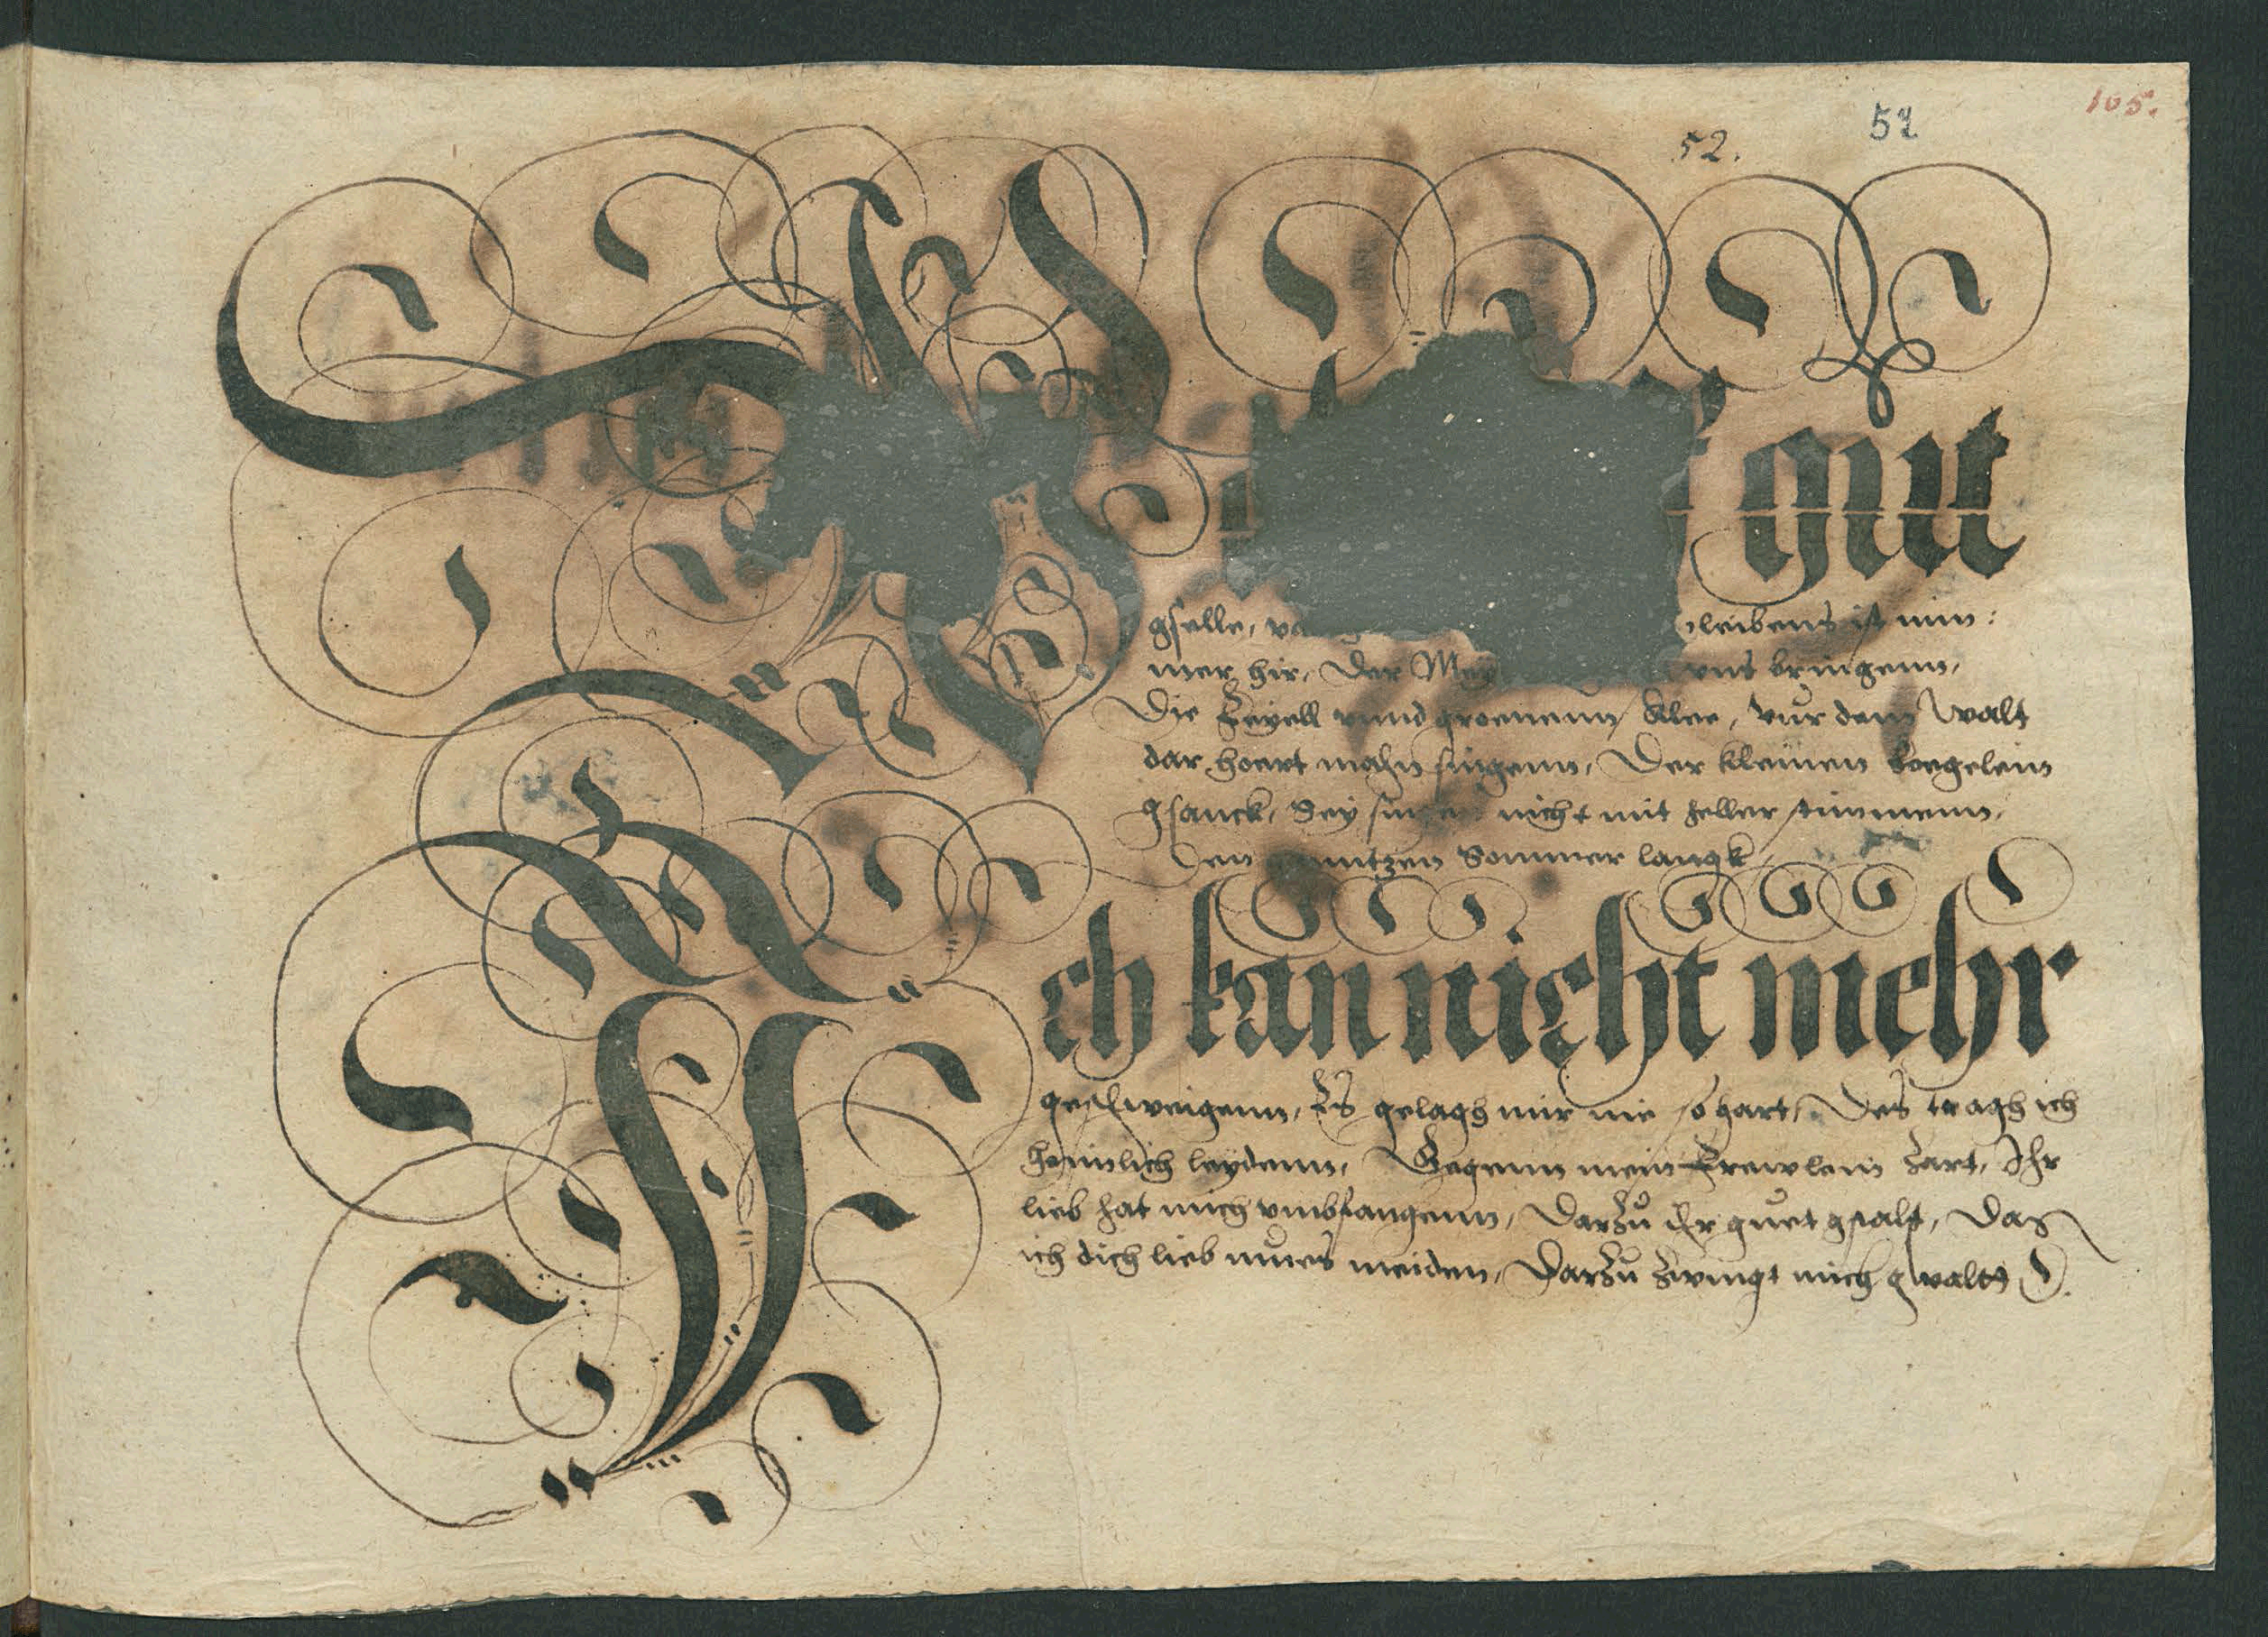 105.
52. 52
W gut
gselle, bleibens ist nim:
mer hir, Der Mey uns bringenn,
Die Feyell unnd groenenn Klee, vur dem Walt
dar hoert mahn singenn, Der kleinen voegelein
gsanck, Sey singen nicht mit heller stimmenn,
Den gantzen Sommer langk,
Ich kan nicht mehr
geschweigenn, Es gelagh mir nie so hart, Des tragh ich
heimlich leydenn, Gegenn mein Frewlein zart, Ihr
lieb hat mich umbfangenn, Darzu Ihr guet gstalt, Das
ich dich lieb mues meiden, Darzu zwingt mich gwalt